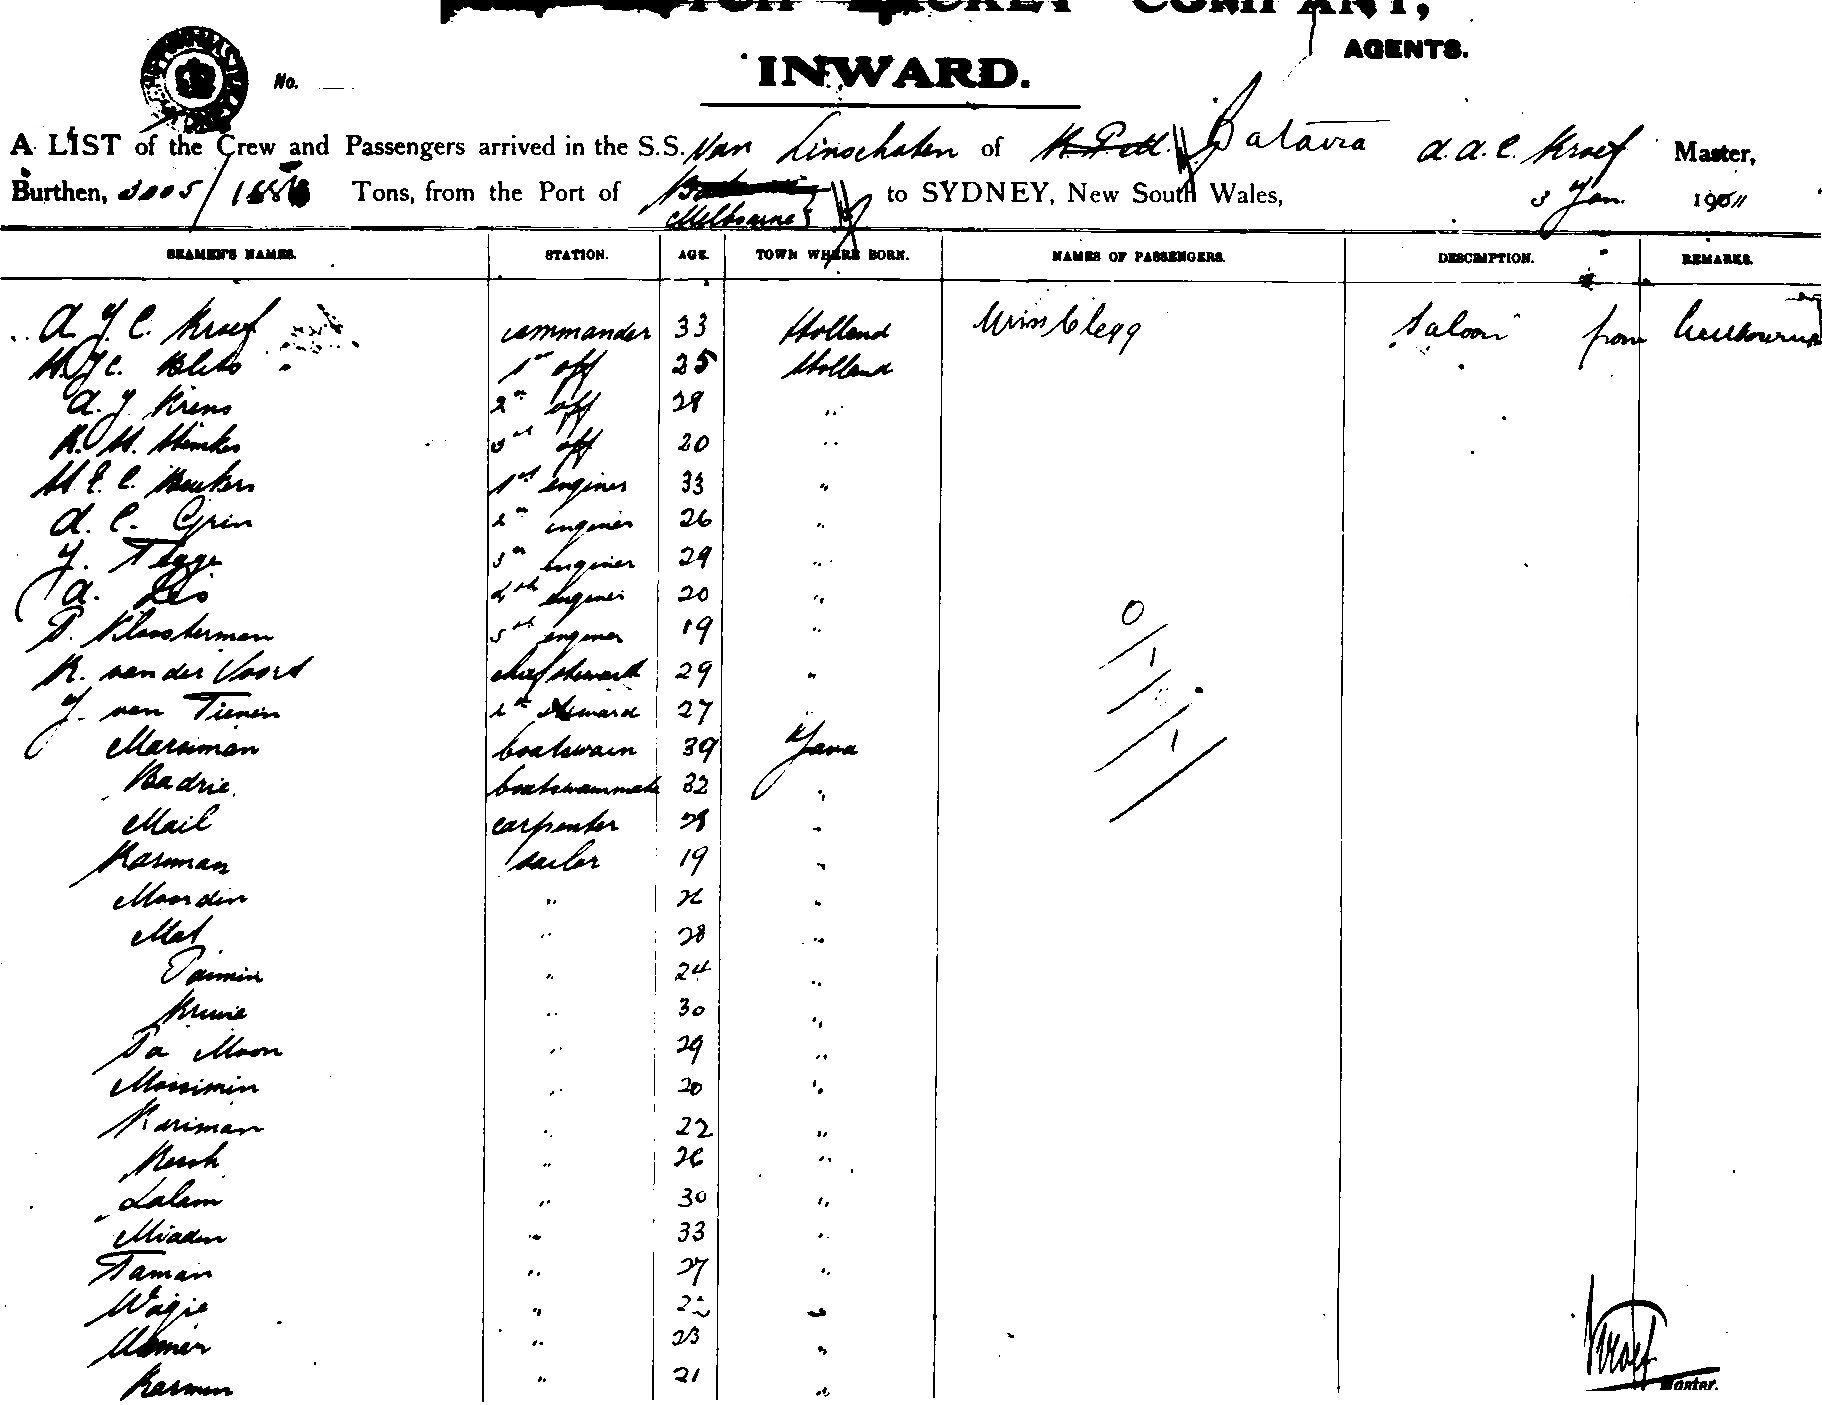 COMPANY,
AGENTS.
INWARD.
No.
A LIST of the Crew and Passengers arrived in the S.S. Van Linschoten of Batavia A. J. C. Kroef Master,
Burthen, 3005/ Tons, from the Port of Melbourne to SYDNEY, New South Wales, 3 Jan. 1911
SEAMEN'S NAMES. STATION. AGE. TOWN WHERE BORN. NAMES OF PASSENGERS. DESCRIPTION. REMARKS.
A J C. Kroef commander 33 Holland Miss Clegg Saloon from Melbourne
1st off 25 Holland
A. J. Krens 2n off 28 "
R. H. 3rd off 20 "
H E. C. Beukers 1st enginer 33 "
A. C. Grin 2n enginer 26 "
J. Tegge 3n enginer 29 "
A. Lis 4th enginer 20 "
P. Kloosterman 5th enginer 19 "
K. van der Voort chief steward 29 "
J. van Tienen 2n steward 27 "
Marsiman boatswain 39 Java
Badrie. boatswainmate 32 "
Mail carpenter 28 "
Kasiman sailor 19 "
Moordin " "
Mat " 28 "
Paimin " 24 "
Krume " 30 "
Pa Moon " 29 "
Massimin " 20 "
Kariman " 22 "
" 26 "
Salam " 30 "
Miadin " 33 "
Taman " 27 "
Wagie " 22 "
" 23 "
Kasmin " 21 "
Kroef
Master.